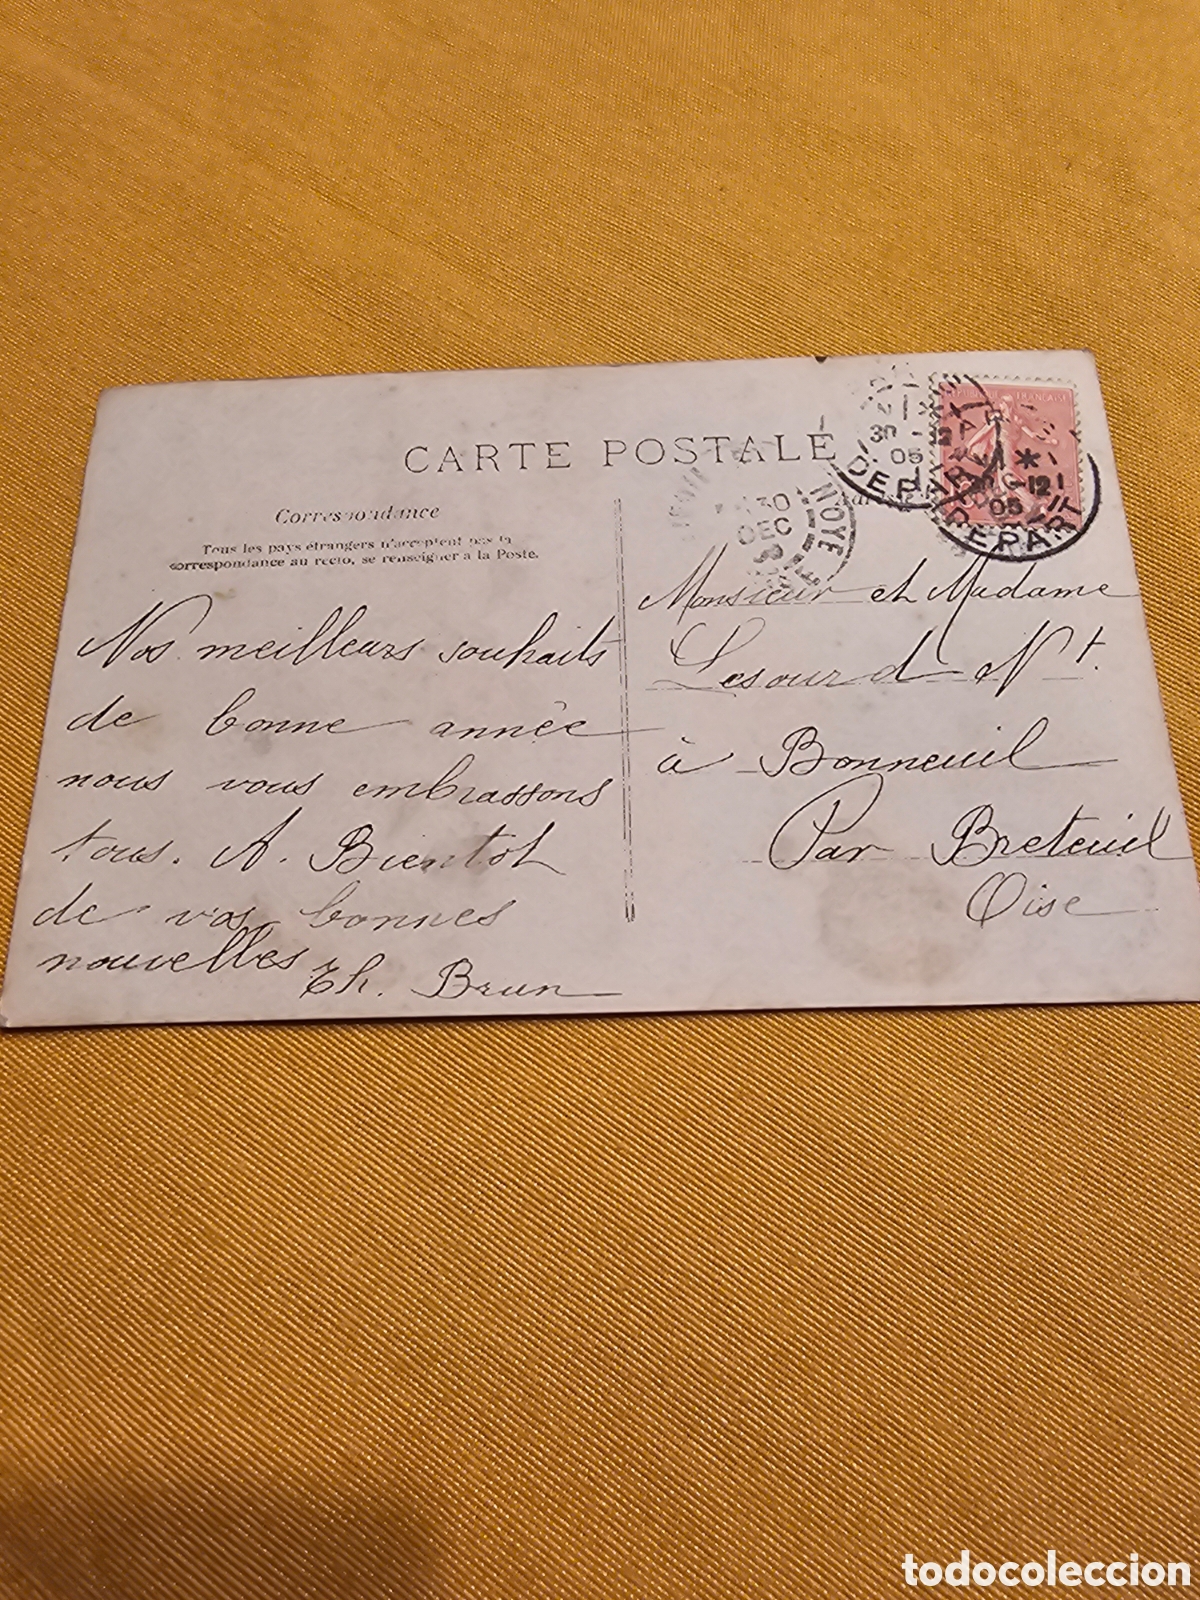 CARTE POSTALE
Correspondance
Tous les pays étrangers n'acceptent pas la
correspondance au recto, se renseigner a la Poste.
Nos meilleurs souhaits
de bonne année
nous vous embrassons
tous. A. Bientot
de vos bonnes
nouvelles
Th. Brun
30 -12
05
DEPART
30 -12
05
DEPART
30
DEC
NOYE
REPUBLIQUE FRANÇAISE
Monsieur et Madame
Lesourd Nt.
à Bonneuil
Par Breteuil
Oise
todocoleccion